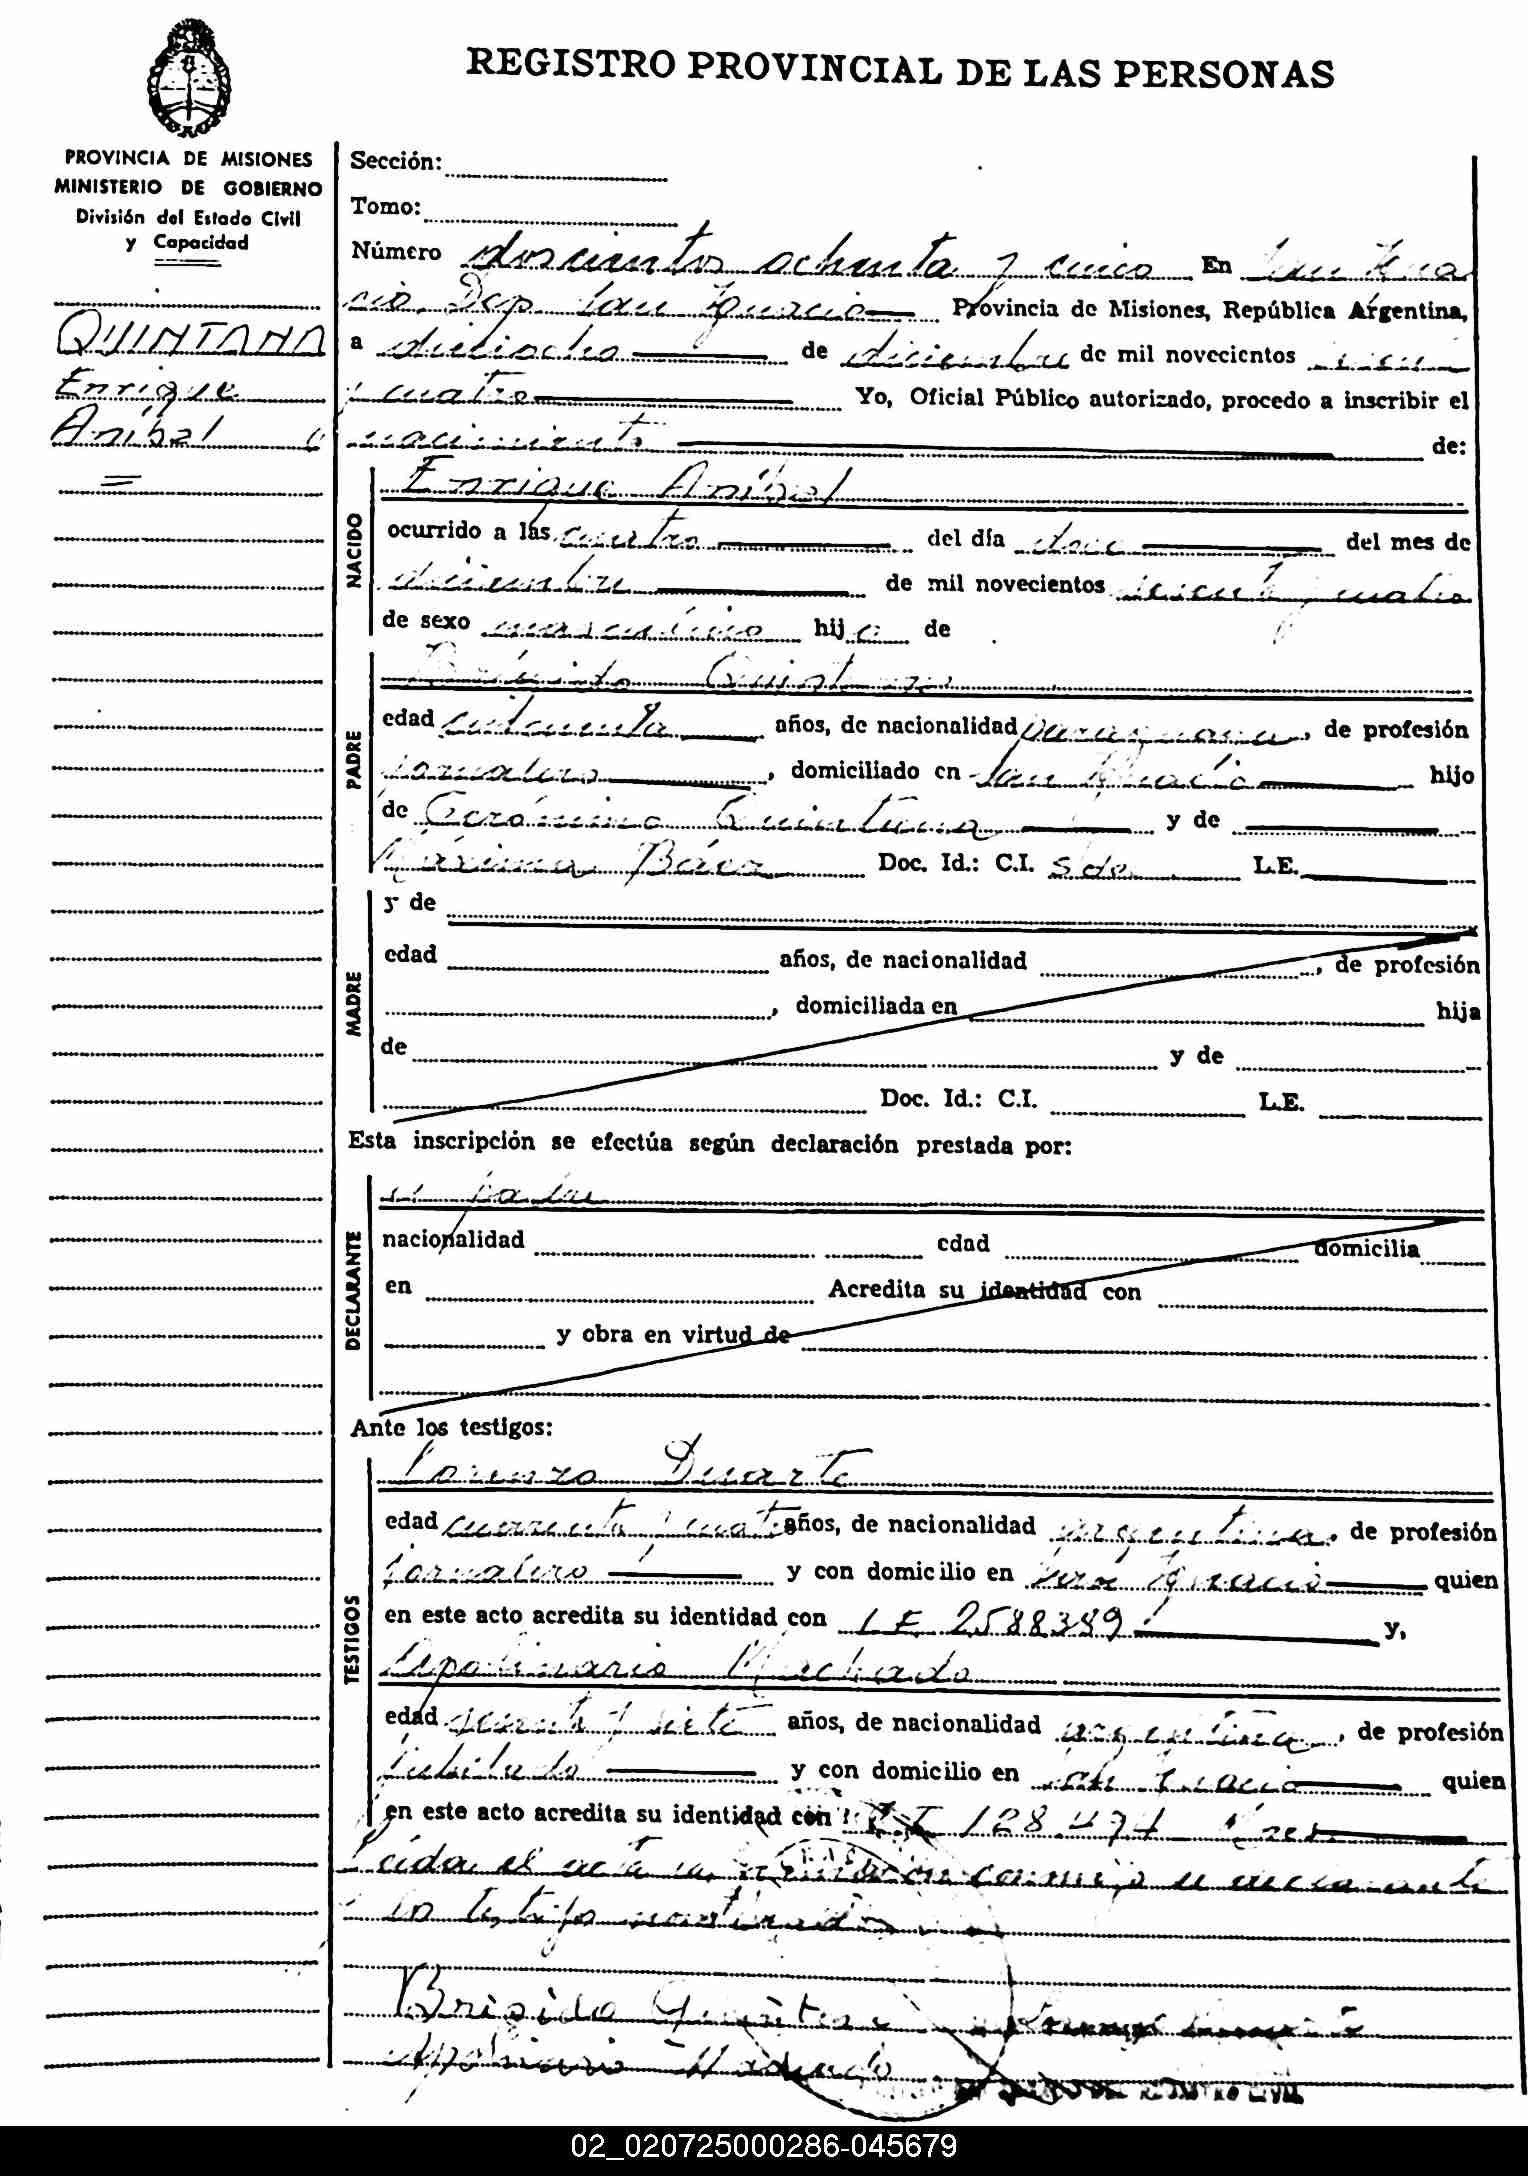 REGISTRO PROVINCIAL DE LAS PERSONAS
PROVINCIA DE MISIONES
MINISTERIO DE GOBIERNO
División del Estado Civil
y Capacidad
QUINTANA
Enrique
Aníbal
Sección:
Tomo:
Número doscientos ochenta y cinco En San Igna
cio, Dep. San Ignacio Provincia de Misiones, República Argentina,
a dieciocho de diciembre de mil novecientos sesenta
y cuatro Yo, Oficial Público autorizado, procedo a inscribir el
nacimiento de:
NACIDO
Enrique Aníbal
ocurrido a las cuatro del día doce del mes de
diciembre de mil novecientos sesenta y cuatro
de sexo masculino hijo de
PADRE
Brígido Quintana
edad cincuenta años, de nacionalidad paraguaya, de profesión
jornalero, domiciliado en San Ignacio hijo
de Gerónimo Quintana y de
Máxima Báez Doc. Id.: C.I. L.E.
MADRE
y de
edad años, de nacionalidad , de profesión
, domiciliada en hija
de y de
Doc. Id.: C.I. L.E.
Esta inscripción se efectúa según declaración prestada por:
DECLARANTE
el padre
nacionalidad edad domicilia
en Acredita su identidad con
y obra en virtud de
Ante los testigos:
TESTIGOS
Lorenzo Duarte
edad cuarenta y cuatro años, de nacionalidad argentina, de profesión
jornalero y con domicilio en San Ignacio quien
en este acto acredita su identidad con LE 2588389 y,
Apolinario Machado
edad sesenta y siete años, de nacionalidad argentina, de profesión
jubilado y con domicilio en San Ignacio quien
en este acto acredita su identidad con C I 128.474 Mnes.
Leída el acta la firmaron conmigo el declarante
y los testigos nombrados
Brígido Quintana
Apolinario Machado
REGISTRO CIVIL
02_020725000286-045679